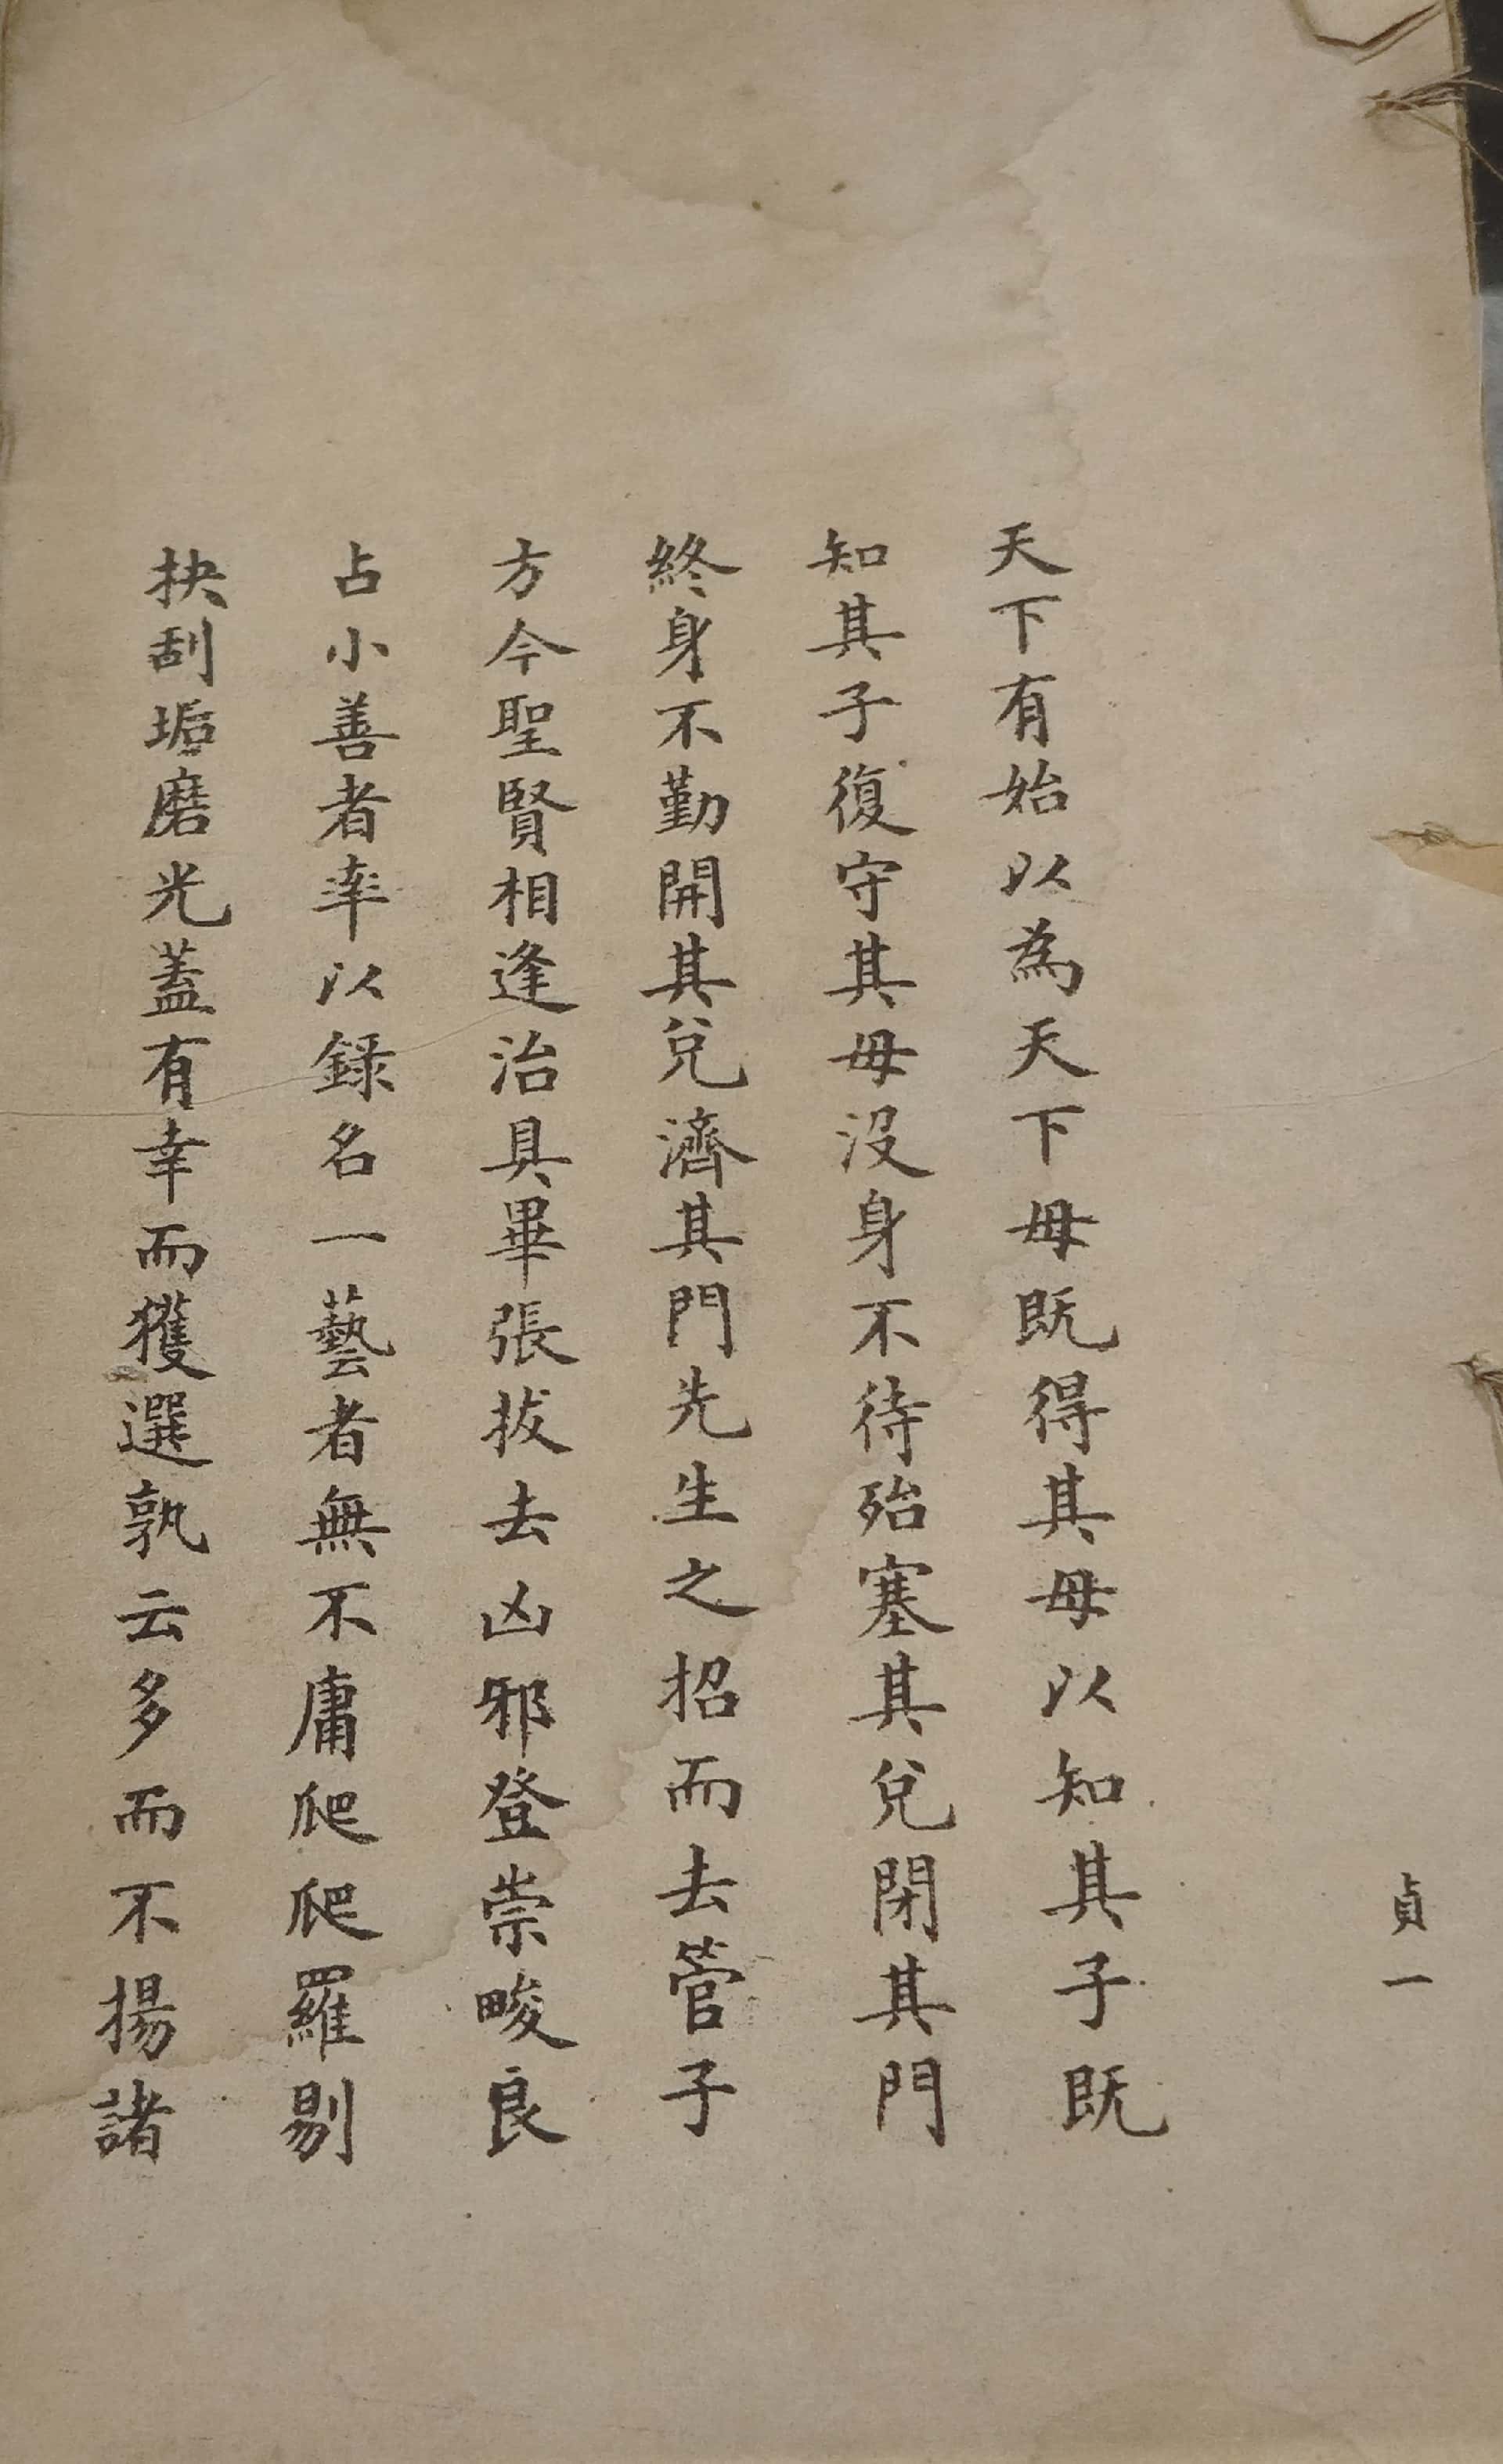 貞一
天下有始以為天下母既得其母以知其子既
知其子復守其母沒身不待殆塞其兌閉其門
終身不勤開其兌濟其門先生之招而去管子
方今聖賢相逢治具畢張拔去凶邪登崇畯良
占小善者率以録名一藝者無不庸爬爬羅剔
抉刮垢磨光蓋有幸而獲選孰云多而不揚諸